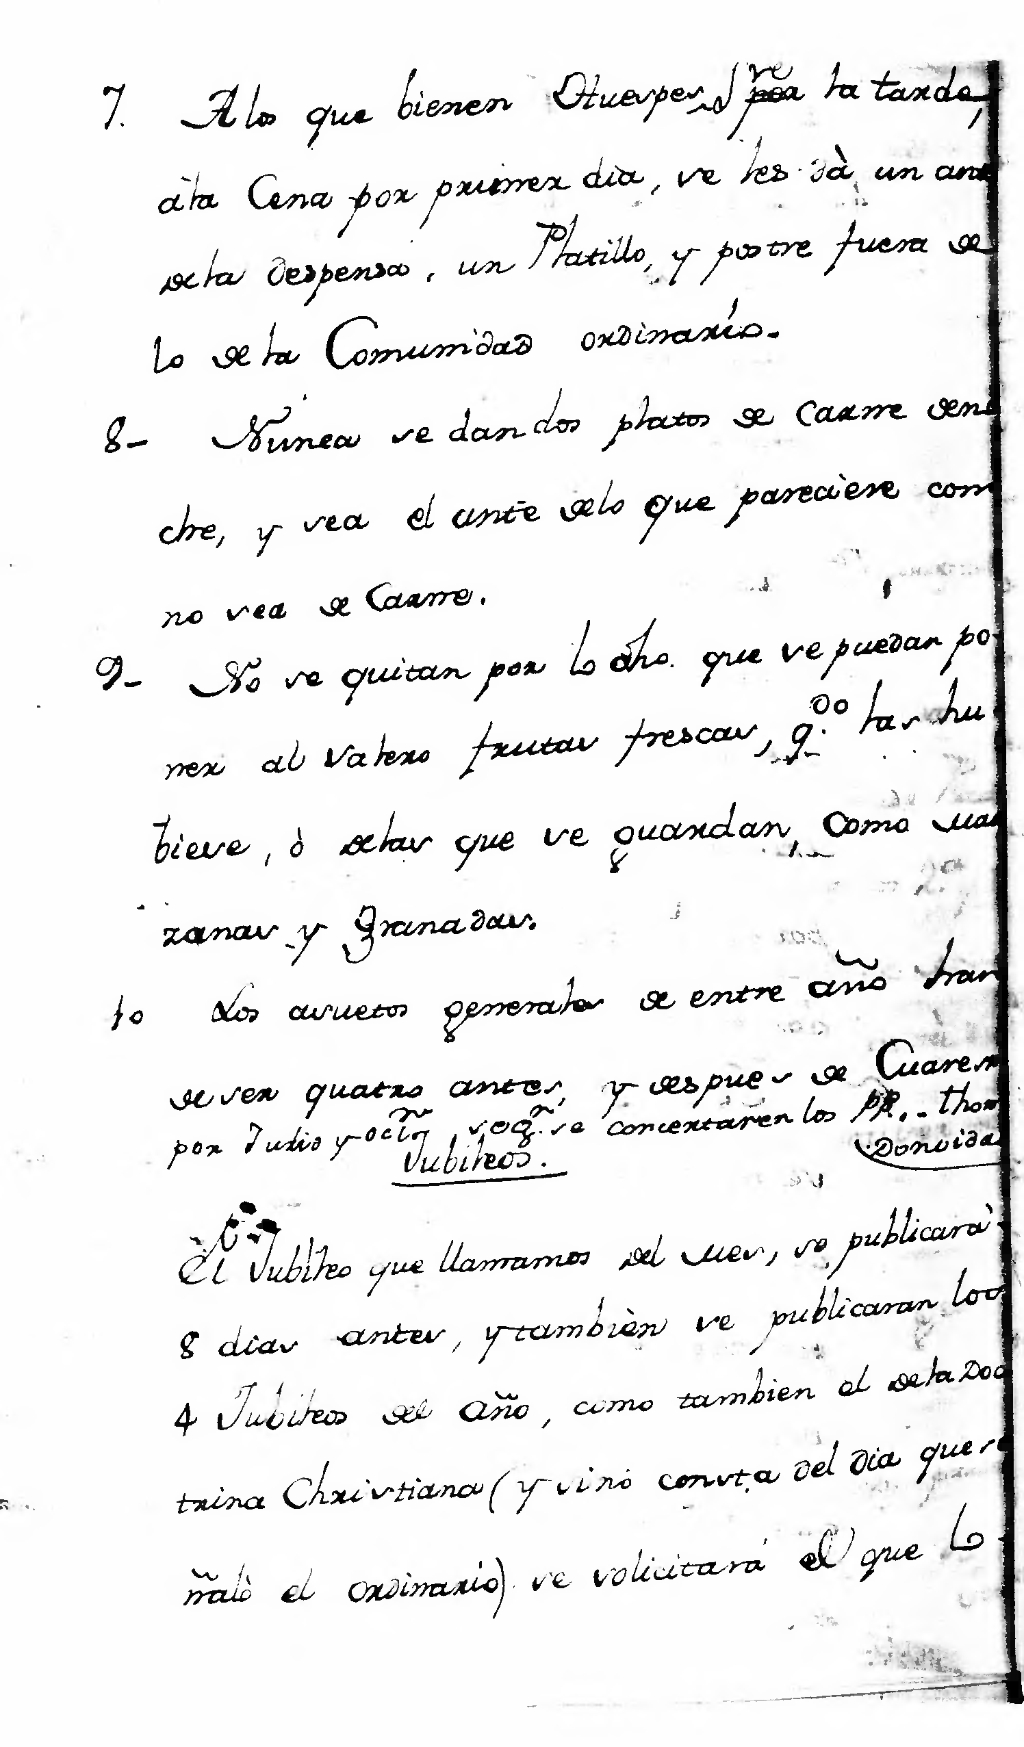 7. A los que bienen Huespes por la tarde,
âla Cena por primer dia, se les dà un ante
dela despensa, un Platillo, y postre fuera de
lo dela Comunidad ordinario.
8- Nunca se dan dos platos de Carne deno
che, y sea el ante delo que pareciere com
no sea de Carne.
9- No se quitan por lo dho. que se puedan po
ner al Valero frutas frescas, q.do las hu
biese, ò delas que se guardan, Como man
zanas y Granadas.
10 Los asuetos generales de entre año han
de ser quatro antes, y despues de Cuaresm
por Julio y oct.re segn. se concertaren los PP. Thom
Donvida
Jubileos.
El Jubileo que llamamos del mes, se publicarà
8 dias antes, y tambièn se publicaran los
4 Jubileos del año, como tambien el dela Doc
trina Christiana (y sinò consta del dia que se
ñalò el ordinario) se solicitarà el que lo